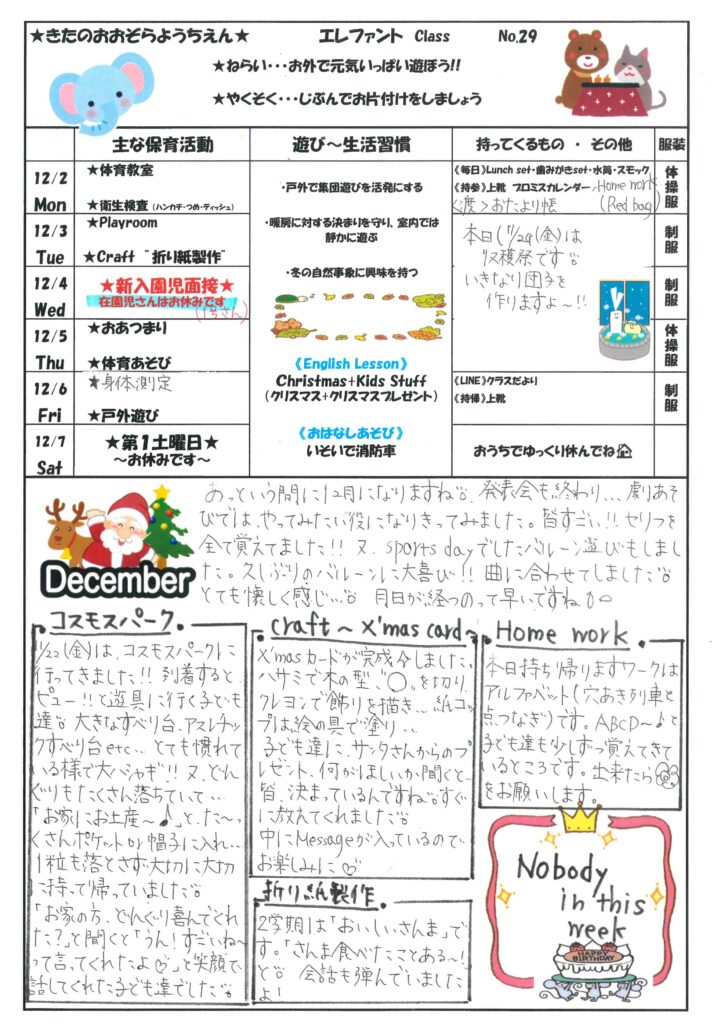 ★きたのおおぞらようちえん★ エレファント Class No.29
★ねらい・・・お外で元気いっぱい遊ぼう!!
★やくそく・・・じぶんでお片付けをしましょう
主な保育活動 遊び～生活習慣 持ってくるもの ・ その他 服装
12/2 Mon
★体育教室
★衛生検査 (ハンカチ・つめ・ティッシュ)
・戸外で集団遊びを活発にする
《毎日》Lunch set・歯みがきset・水筒・スモック
《持参》上靴 プロミスカレンダー Home work
<渡>おたより帳 (Red bag)
体操服
12/3 Tue
★Playroom
★Craft "折り紙製作"
・暖房に対する決まりを守り、室内では
静かに遊ぶ
本日(11/29(金)は
収穫祭です
いきなり団子を
作りますよ～!!
制服
12/4 Wed
★新入園児面接★
在園児さんはお休みです
(1号さん)
・冬の自然事象に興味を持つ
制服
12/5 Thu
★おあつまり
★体育あそび
《English Lesson》
Christmas+Kids Stuff
(クリスマス+クリスマスプレゼント)
体操服
12/6 Fri
★身体測定
★戸外遊び
《LINE》クラスだより
《持帰》上靴
制服
12/7 Sat
★第１土曜日★
～お休みです～
《おはなしあそび》
いそいで消防車
おうちでゆっくり休んでね
December
あっという間に12月になりますね。発表会も終わり... 劇あそ
びでは、やってみたい役になりきってみました。皆すごい!! セリフを
全て覚えてました!! 又、sports dayでしたバルーン遊びもしまし
た。久しぶりのバルーンに大喜び!! 曲に合わせてしました
とても懐しく感じ... 月日が経つのって早いですね
コスモスパーク
11/22(金)は、コスモスパークに
行ってきました!! 到着すると
ピュー!!と遊具に行く子ども
達。大きなすべり台、アスレチッ
クすべり台etc... とても慣れて
いる様で大ハシャギ!! 又、どん
ぐりもたくさん落ちていて...
「お家にお土産～♪」と、た～っ
くさんポケットor帽子に入れ...
1粒も落とさず大切に大切
に持って帰っていました
「お家の方、どんぐり喜んでくれ
た?」と聞くと「うん!すごいね～
って言ってくれたよ♡」と笑顔で
話してくれた子ども達でした
craft ～ X'mas card
X'masカードが完成しました。
ハサミで木の型、"〇"を切り、
クレヨンで飾りを描き... 紙コッ
プは絵の具で塗り...
子ども達に、サンタさんからのプ
レゼント、何がほしいか聞くと...
皆、決まっているんですね すぐ
に教えてくれました
中にMessageが入っているので
お楽しみに♡
折り紙製作
2学期は「おいしいさんま」で
す。「さんま食べたことある～!」
と 会話も弾んでいました
よ!
Home work
本日持ち帰りますワークは
アルファベット(穴あき列車と
点つなぎ)です。ABCD～♪と
子ども達も少しずつ覚えてきて
いるところです。出来たら
をお願いします。
Nobody
in this
week
HAPPY
BIRTHDAY